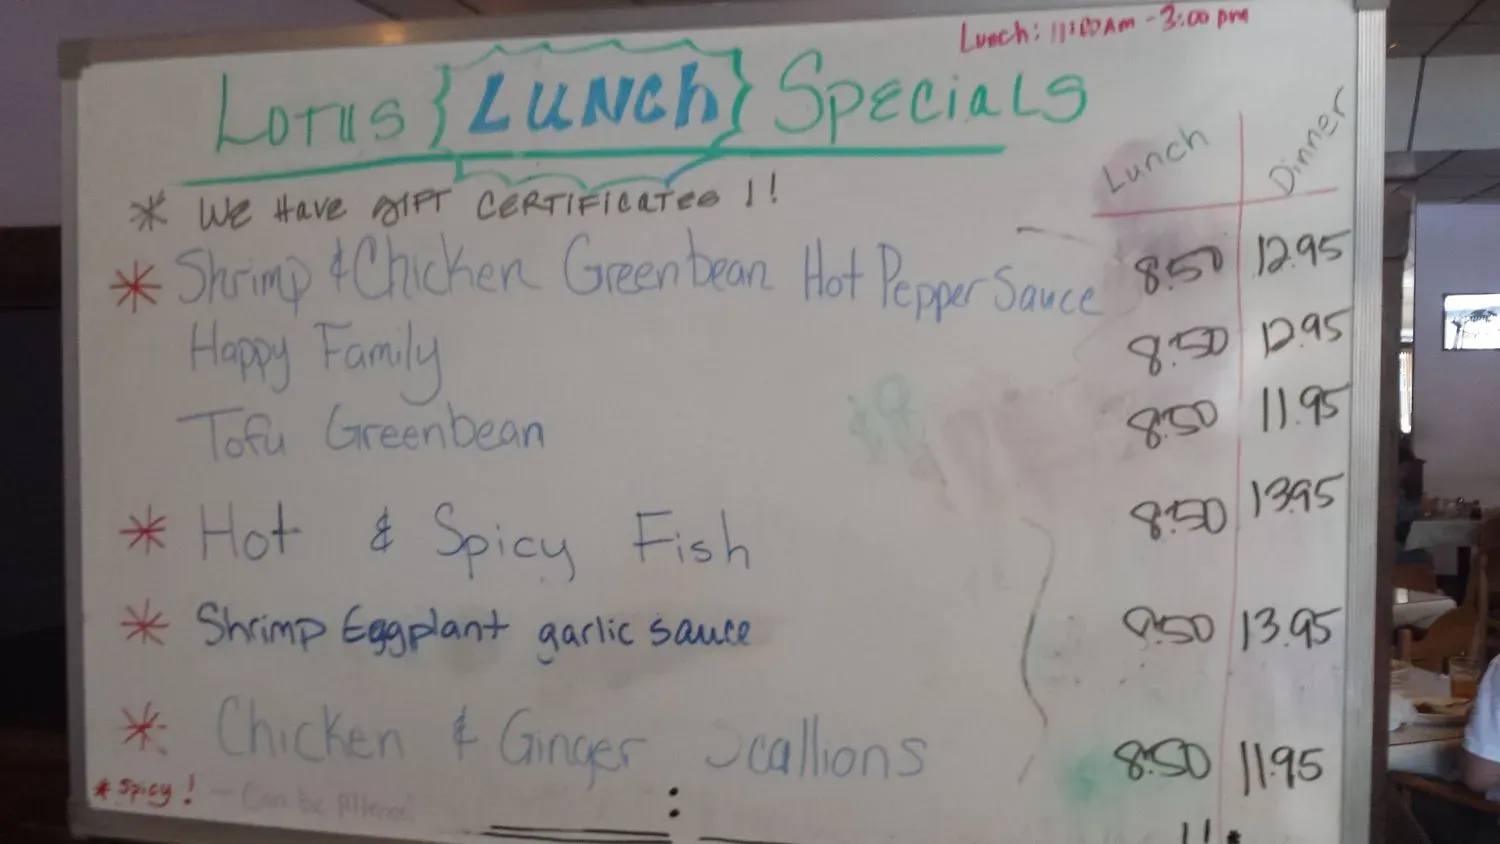 Lunch: 11:00 AM - 3:00 pm
Lotus {Lunch} Specials
Lunch | Dinner
* We Have Gift Certificates!!
* Shrimp & Chicken Greenbean Hot Pepper Sauce 8.50 12.95
Happy Family 8.50 12.95
Tofu Greenbean 8.50 11.95
* Hot & Spicy Fish 8.50 13.95
* Shrimp Eggplant garlic sauce 13.95
* Chicken & Ginger Scallions 8.50 11.95
* Spicy! - Can be